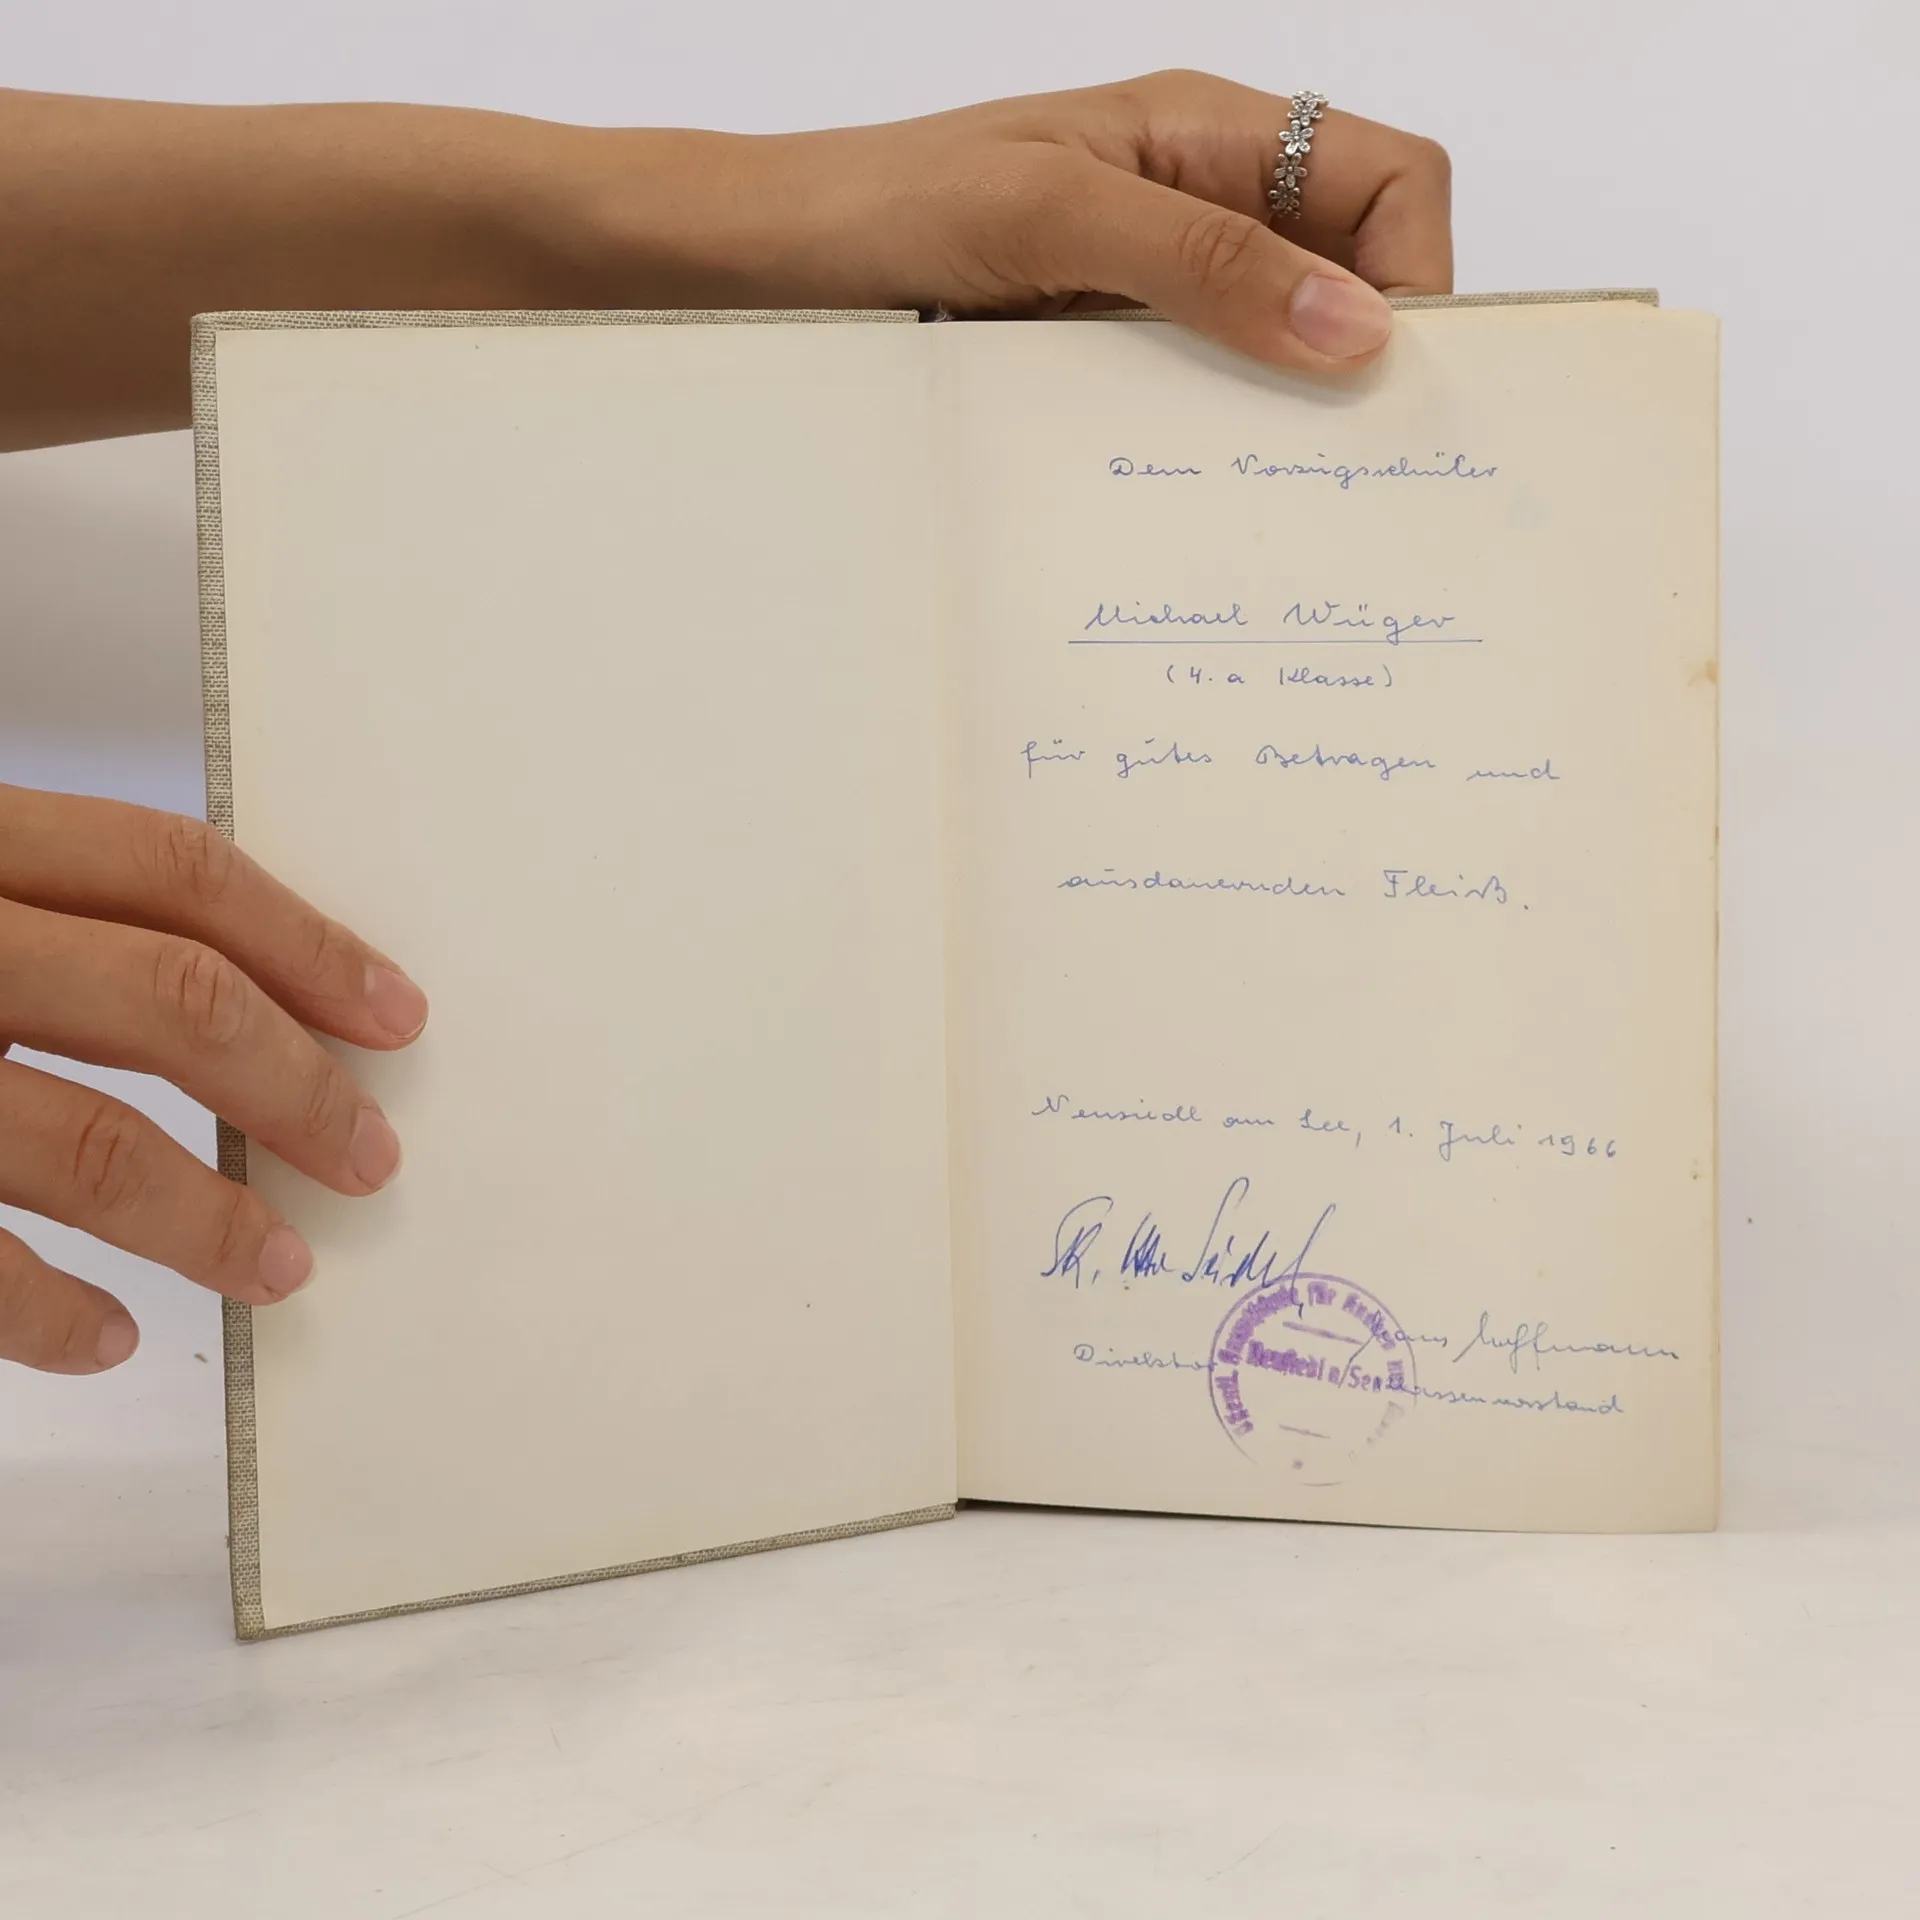 Dem Vorzugsschüler
Michael Wüger
(4. a Klasse)
für gutes Betragen und
ausdauernden Fleiß.
Neusiedl am See, 1. Juli 1966
Seidel
Direktor
Hans Hoffmann
Klassenvorstand
Hauptschule für Knaben
Neusiedl a/See